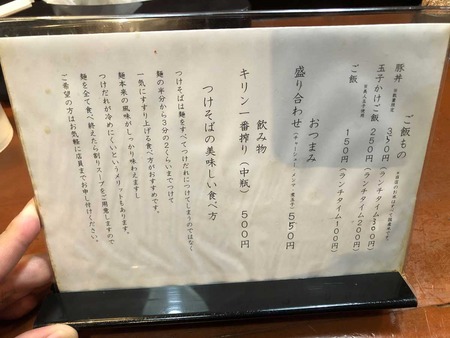 ご飯もの
豚丼
350円(ランチタイム300円)
玉子かけご飯
250円(ランチタイム200円)
ご飯
150円(ランチタイム100円)
おつまみ
盛り合わせ(チャーシュー、メンマ、煮玉子)550円
飲み物
キリン一番搾り(中瓶) 500円
つけそばの美味しい食べ方
つけそばは麺をすべてつけだれにつけてしまうのではなく
麺の半分から3分の2くらいまでつけて
一気にすすり上げる食べ方がおすすめです。
麺本来の風味がしっかり味わえますし
つけだれが冷めにくいというメリットもあります。
麺を全て食べ終えたら割りスープをご用意しますので
ご希望の方はお気軽に店員までお申し付けください。